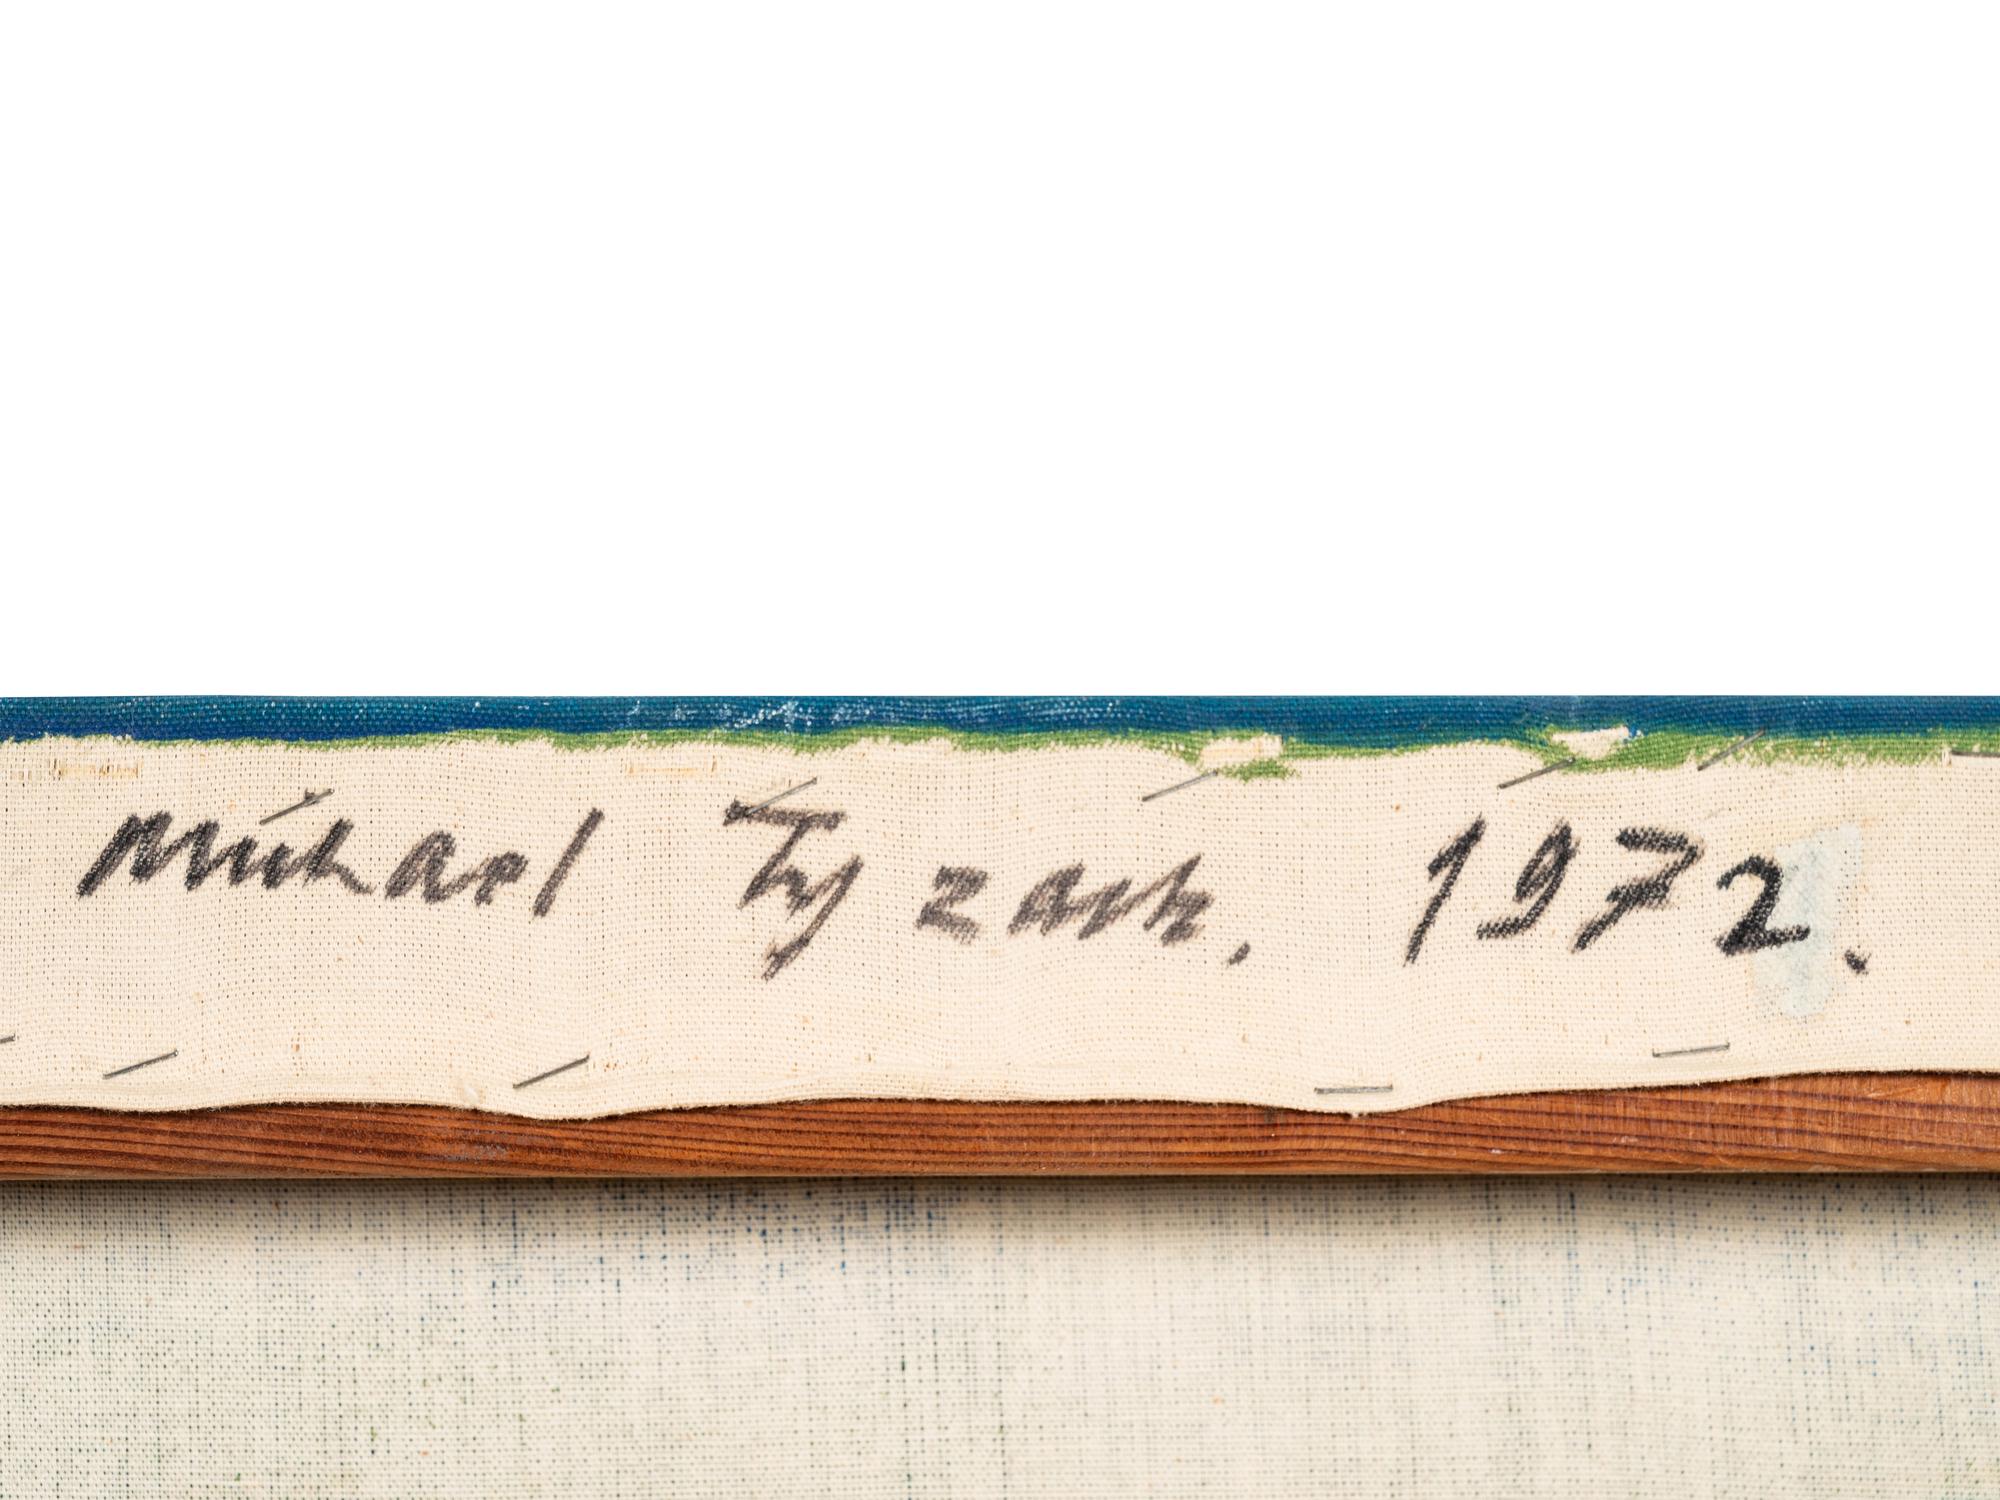 Michael Tyzack, 1972.